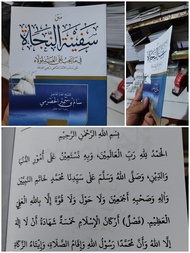 متن
سفينة النجاة
سالم بن سمير الحضرمي
بِسْمِ اللهِ الرَّحْمٰنِ الرَّحِيْمِ
الْحَمْدُ لِلّٰهِ رَبِّ الْعَالَمِيْنَ، وَبِهِ نَسْتَعِيْنُ عَلَى أُمُوْرِ الدُّنْيَا
وَالدِّيْنِ، وَصَلَّى اللهُ وَسَلَّمَ عَلَى سَيِّدِنَا مُحَمَّدٍ خَاتَمِ النَّبِيِّيْنَ
وَآلِهِ وَصَحْبِهِ أَجْمَعِيْنَ وَلَا حَوْلَ وَلَا قُوَّةَ إِلَّا بِاللهِ الْعَلِيِّ
الْعَظِيْمِ. (فَصْلٌ) أَرْكَانُ الْإِسْلَامِ خَمْسَةٌ شَهَادَةُ أَنْ لَا إِلٰهَ
إِلَّا اللهُ وَأَنَّ مُحَمَّدًا رَسُوْلُ اللهِ وَإِقَامُ الصَّلَاةِ، وَإِيْتَاءُ الزَّكَاةِ